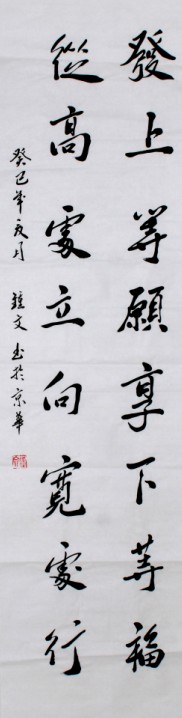 發上等願享下等福
從高處立向寬處行
癸巳年夏月
文書於京華